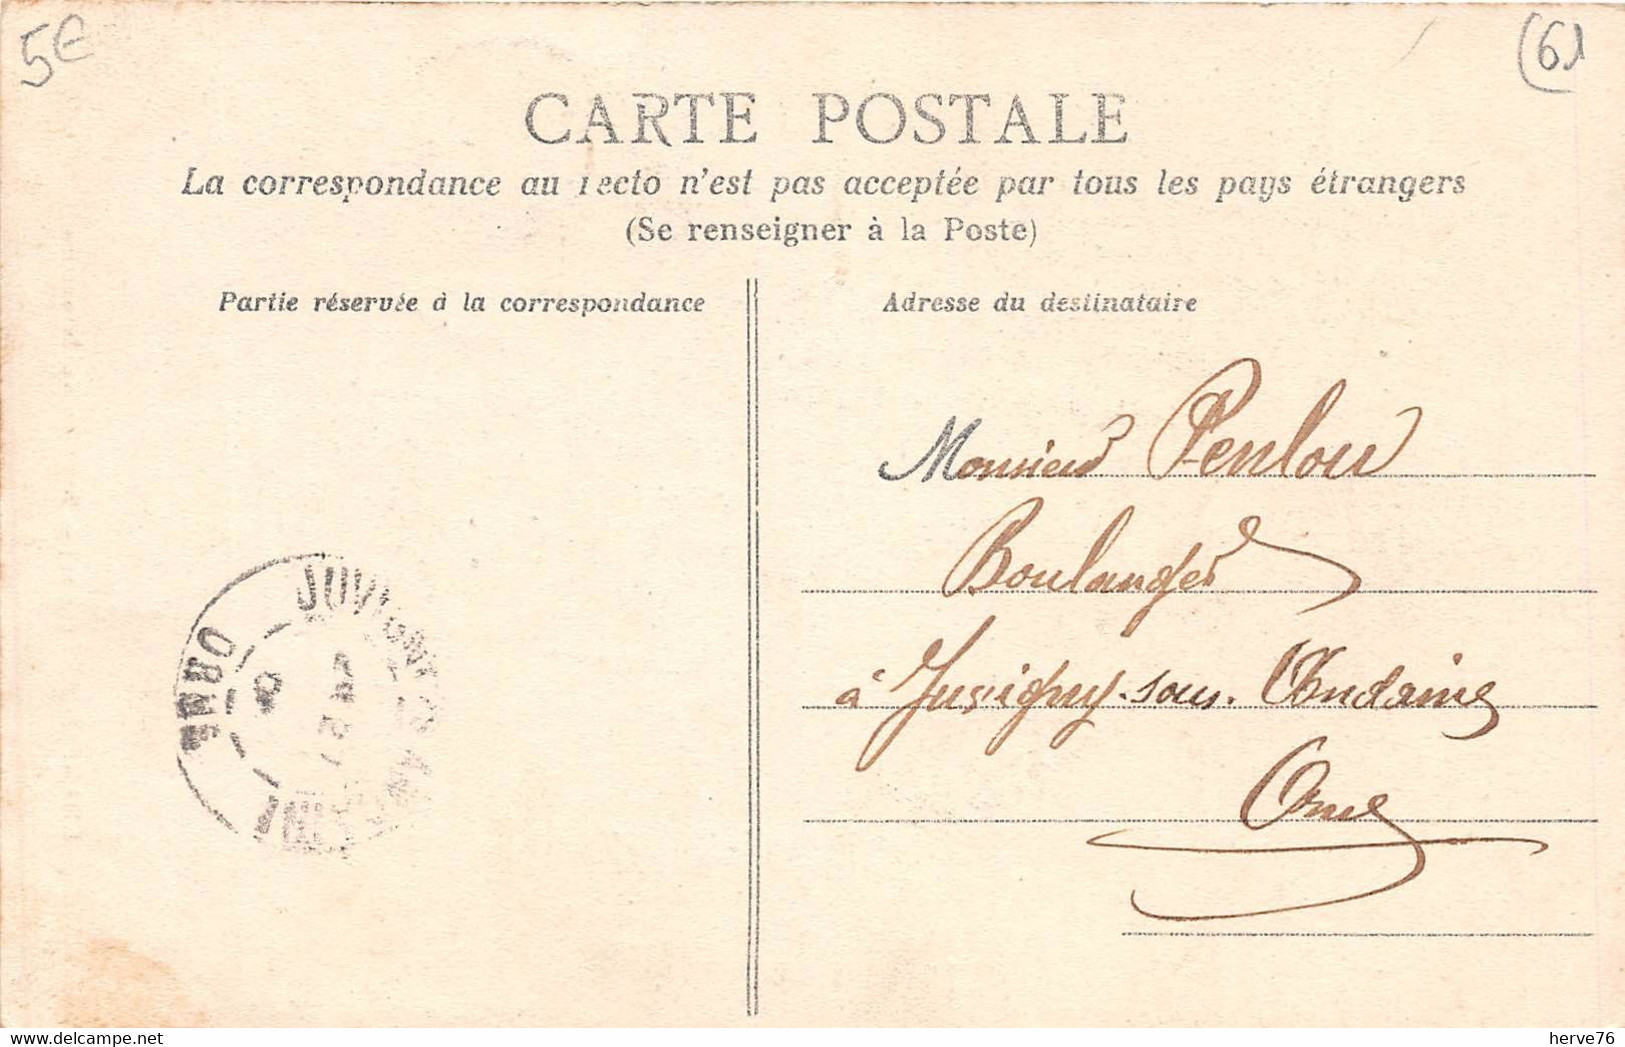 5€
(61
CARTE POSTALE
La correspondance au recto n'est pas acceptée par tous les pays étrangers
(Se renseigner à la Poste)
Partie réservée à la correspondance
Adresse du destinataire
Monsieur Penlou
Boulanger
à Juvigny-sous-Andaine
Orne
JUVIGNY
ORNE
Delcampe.net
herve76